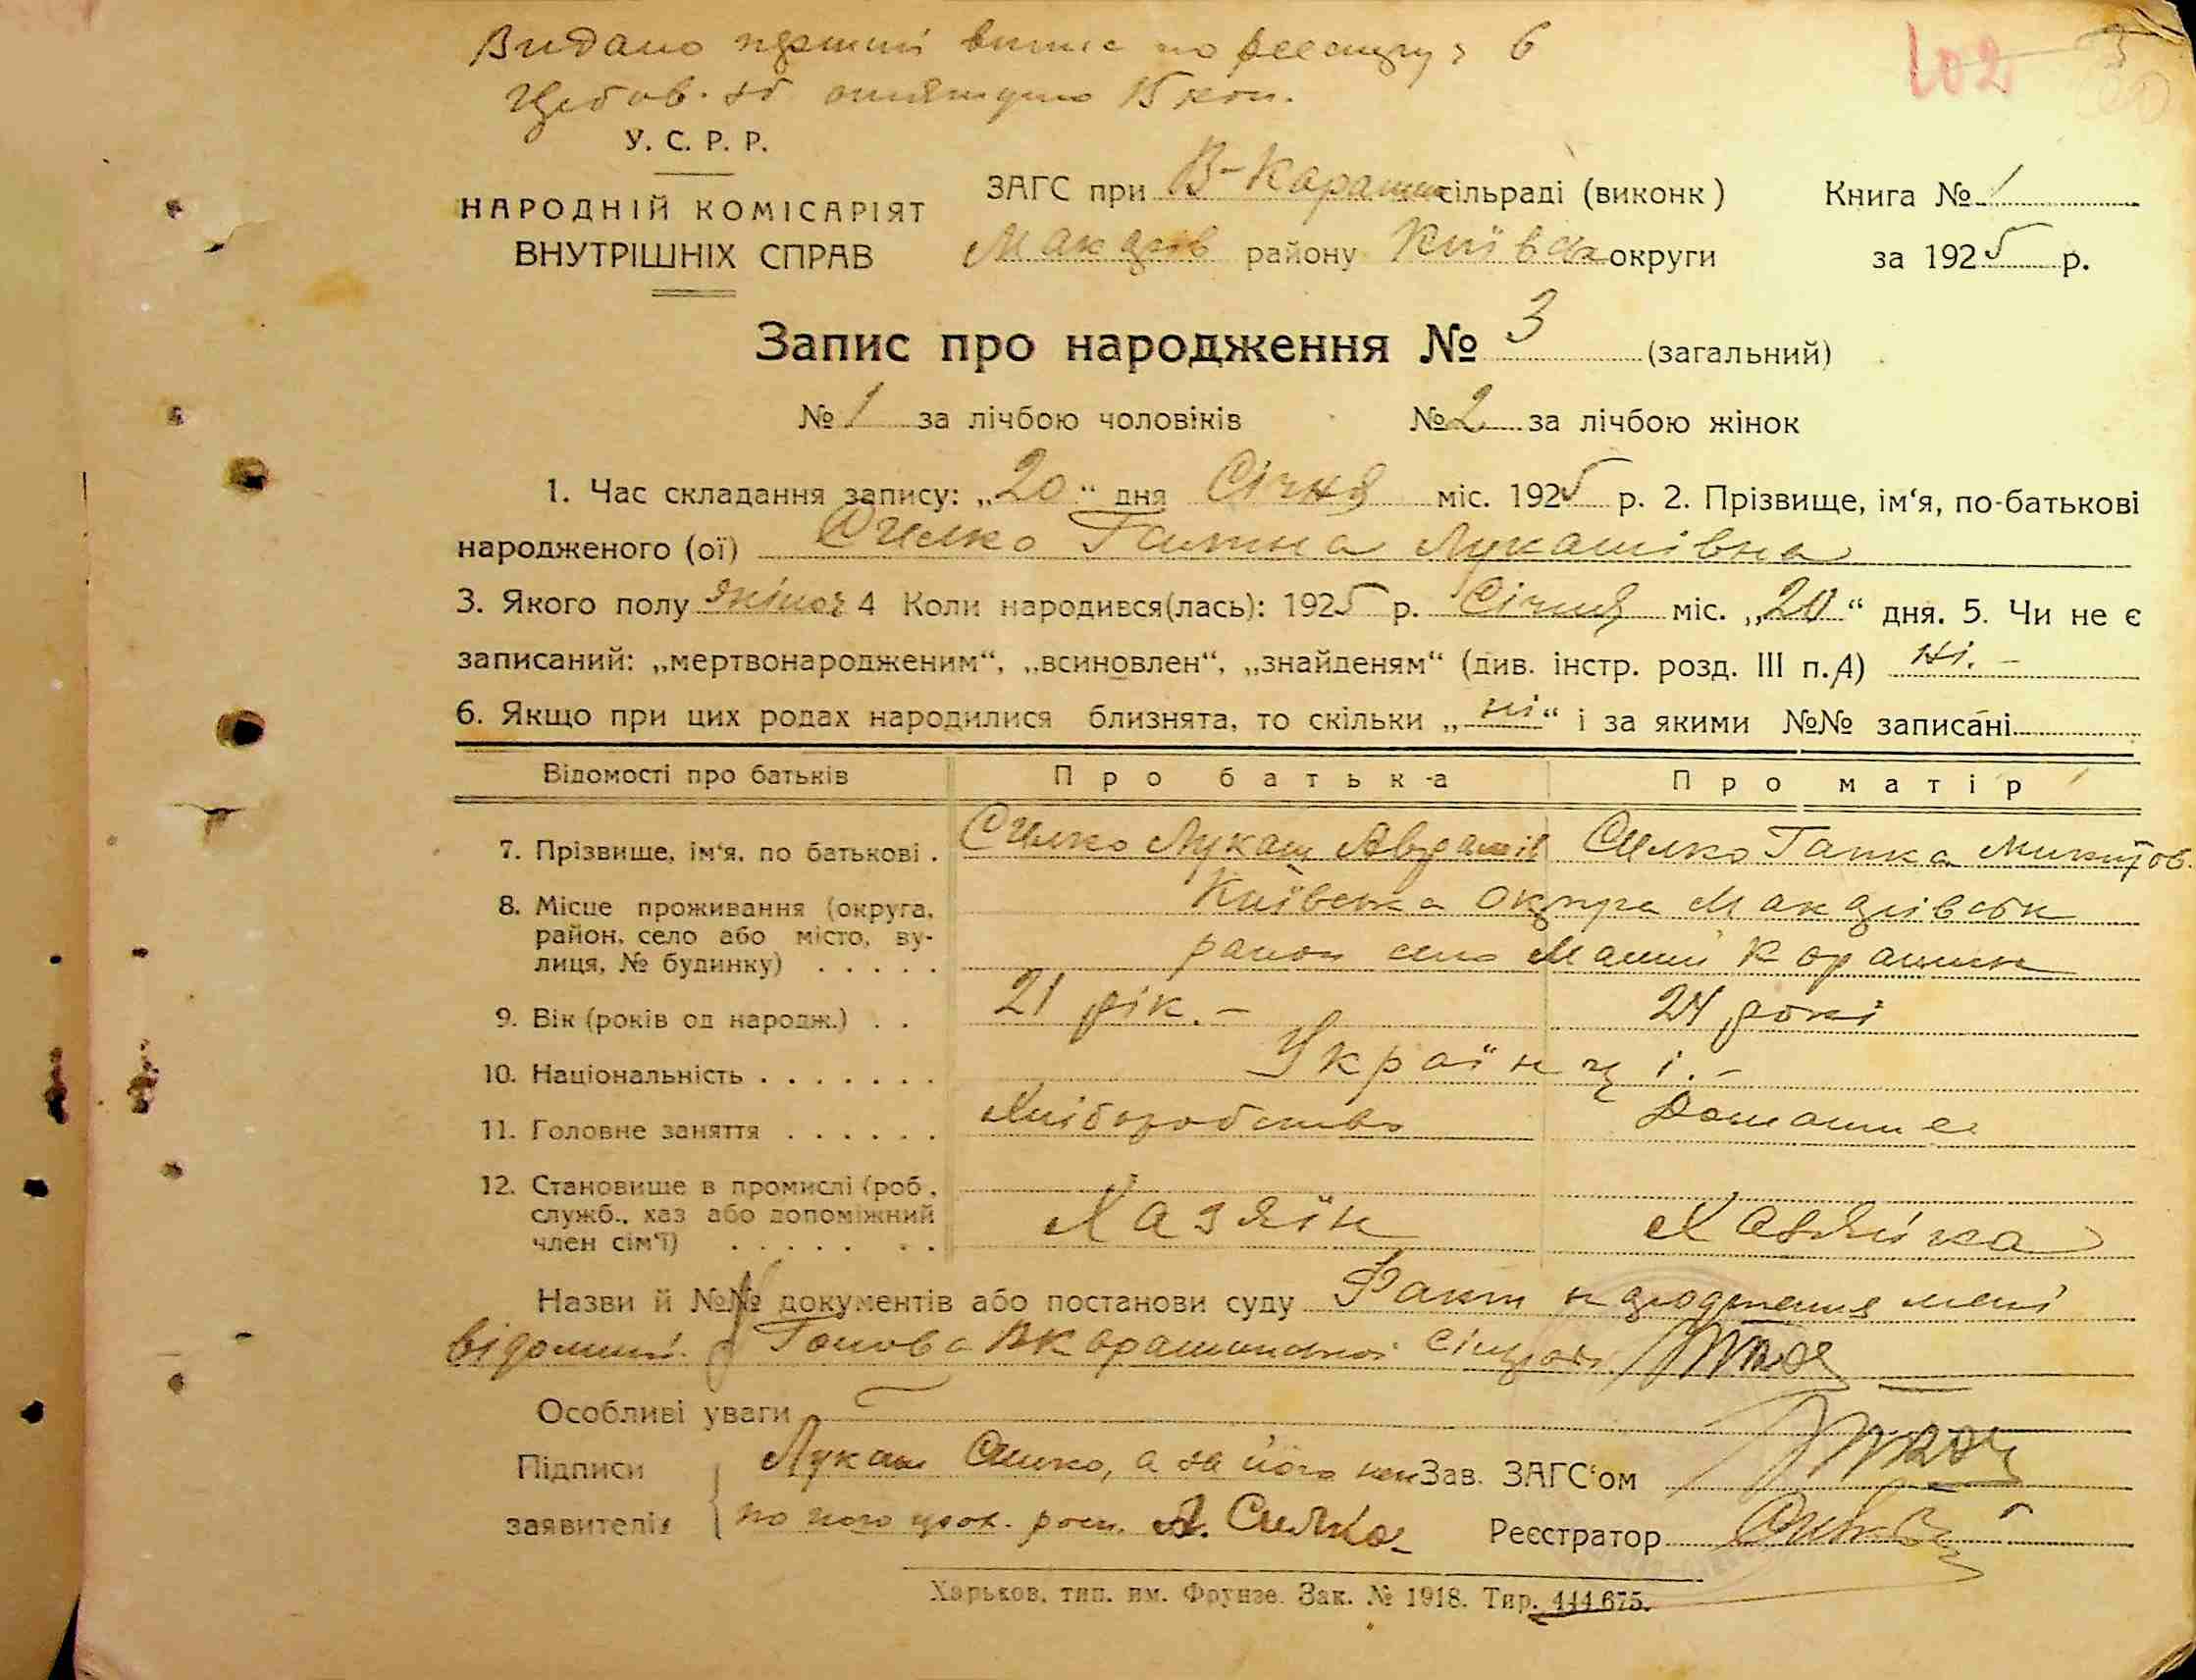 Видано перший випис по реєстру з 6
Гербов. зб. отримано 15 коп.
102 3
У. С. Р. Р.
НАРОДНІЙ КОМІСАРІЯТ
ВНУТРІШНІХ СПРАВ
ЗАГС при В-Карашин сільраді (виконк)
Макарів району Київськ округи
Книга № 1
за 1925 р.
Запис про народження № 3 (загальний)
№ 1 за лічбою чоловіків № 2 за лічбою жінок
1. Час складання запису: „20“ дня Січня міс. 1925 р. 2. Прізвище, ім‘я, по-батькові
народженого (ої) Силко Ганна Лукашівна
3. Якого полу жіноч 4 Коли народився(лась): 1925 р. Січня міс. „20“ дня. 5. Чи не є
записаний: „мертвонародженим“, „всиновлен“, „знайденям“ (див. інстр. розд. III п. 4) ні. –
6. Якщо при цих родах народилися близнята, то скільки „ні“ і за якими №№ записані
Відомості про батьків Про батька Про матір
7. Прізвище, ім‘я, по батькові . Силко Лукаш Аврамів Силко Ганка Микитов.
8. Місце проживання (округа, Київська округа Макарівськ
район, село або місто, ву- район село Малий Карашин
лиця, № будинку) . . . . .
9. Вік (років од народж.) . . 21 рік. – 24 рокі
10. Національність . . . . . . . Українці. –
11. Головне заняття . . . . . . Хліборобство Домашнє
12. Становище в промислі (роб.,
служб., хаз або допоміжний Хазяїн Хазяйка
член сім‘ї) . . . . . . .
Назви й №№ документів або постанови суду Факт народження мені
відомий. Голова ВКарашинської сільради
Особливі уваги
Підписи Лукаш Силко, а за його непи Зав. ЗАГС‘ом
заявителів по його прох. росп. А. Силко Реєстратор
Харьков, тип. им. Фрунзе. Зак. № 1918. Тир. 444.675.